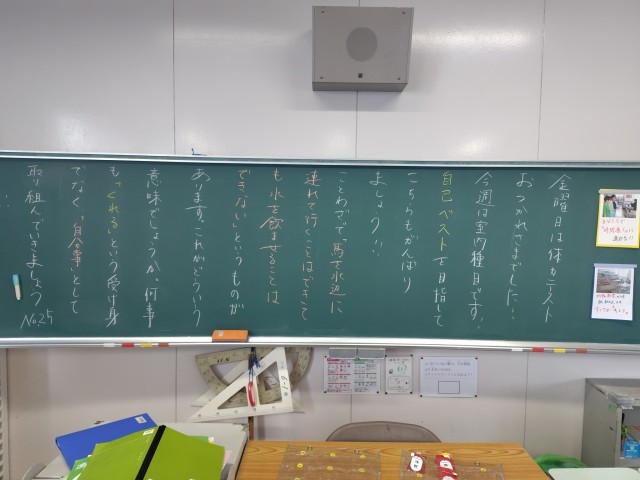 金曜日は体力テスト
おつかれさまでした…
今週は室内種目です。
自己ベストを目指して
こちらもがんばり
ましょう!!
ことわざで「馬を水辺に
連れて行くことはできて
も水を飲ませることは
できない」というものが
あります。これがどういう
意味でしょうか。何事
も「くれる」という受け身
でなく、「自分事」として
取り組んでいきましょう
No.25